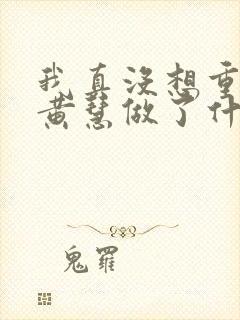 我真没想重
黄慧做了什
鬼羅